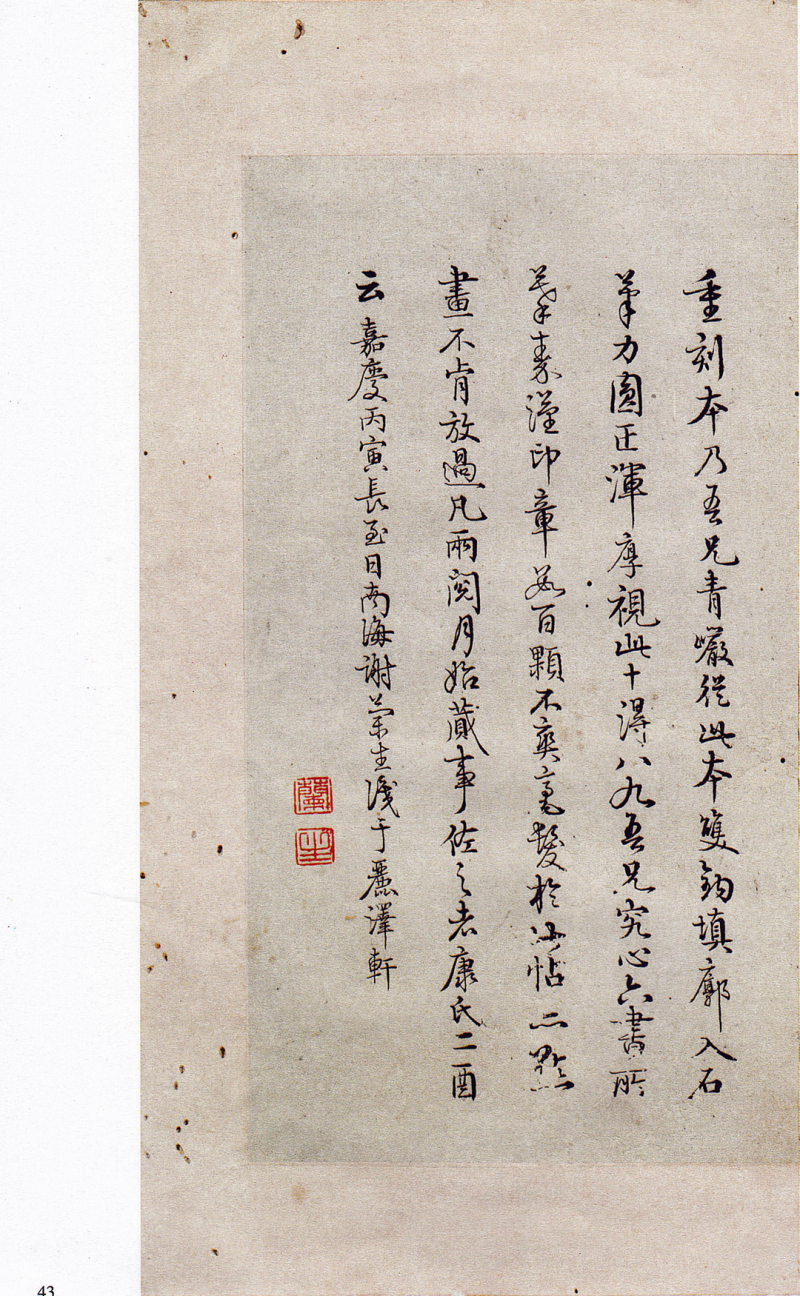 重刻本乃吾兄青巖從此本雙鉤填廓入石
筆力圓正渾厚視此十得八九吾兄究心六書所
摹秦漢印章數百顆不爽毫髮於此帖一點
畫不肯放過凡兩閱月始蕆事佐之者康氏二酉
云 嘉慶丙寅長至日南海謝蘭生識于麗澤軒
蘭
生
43